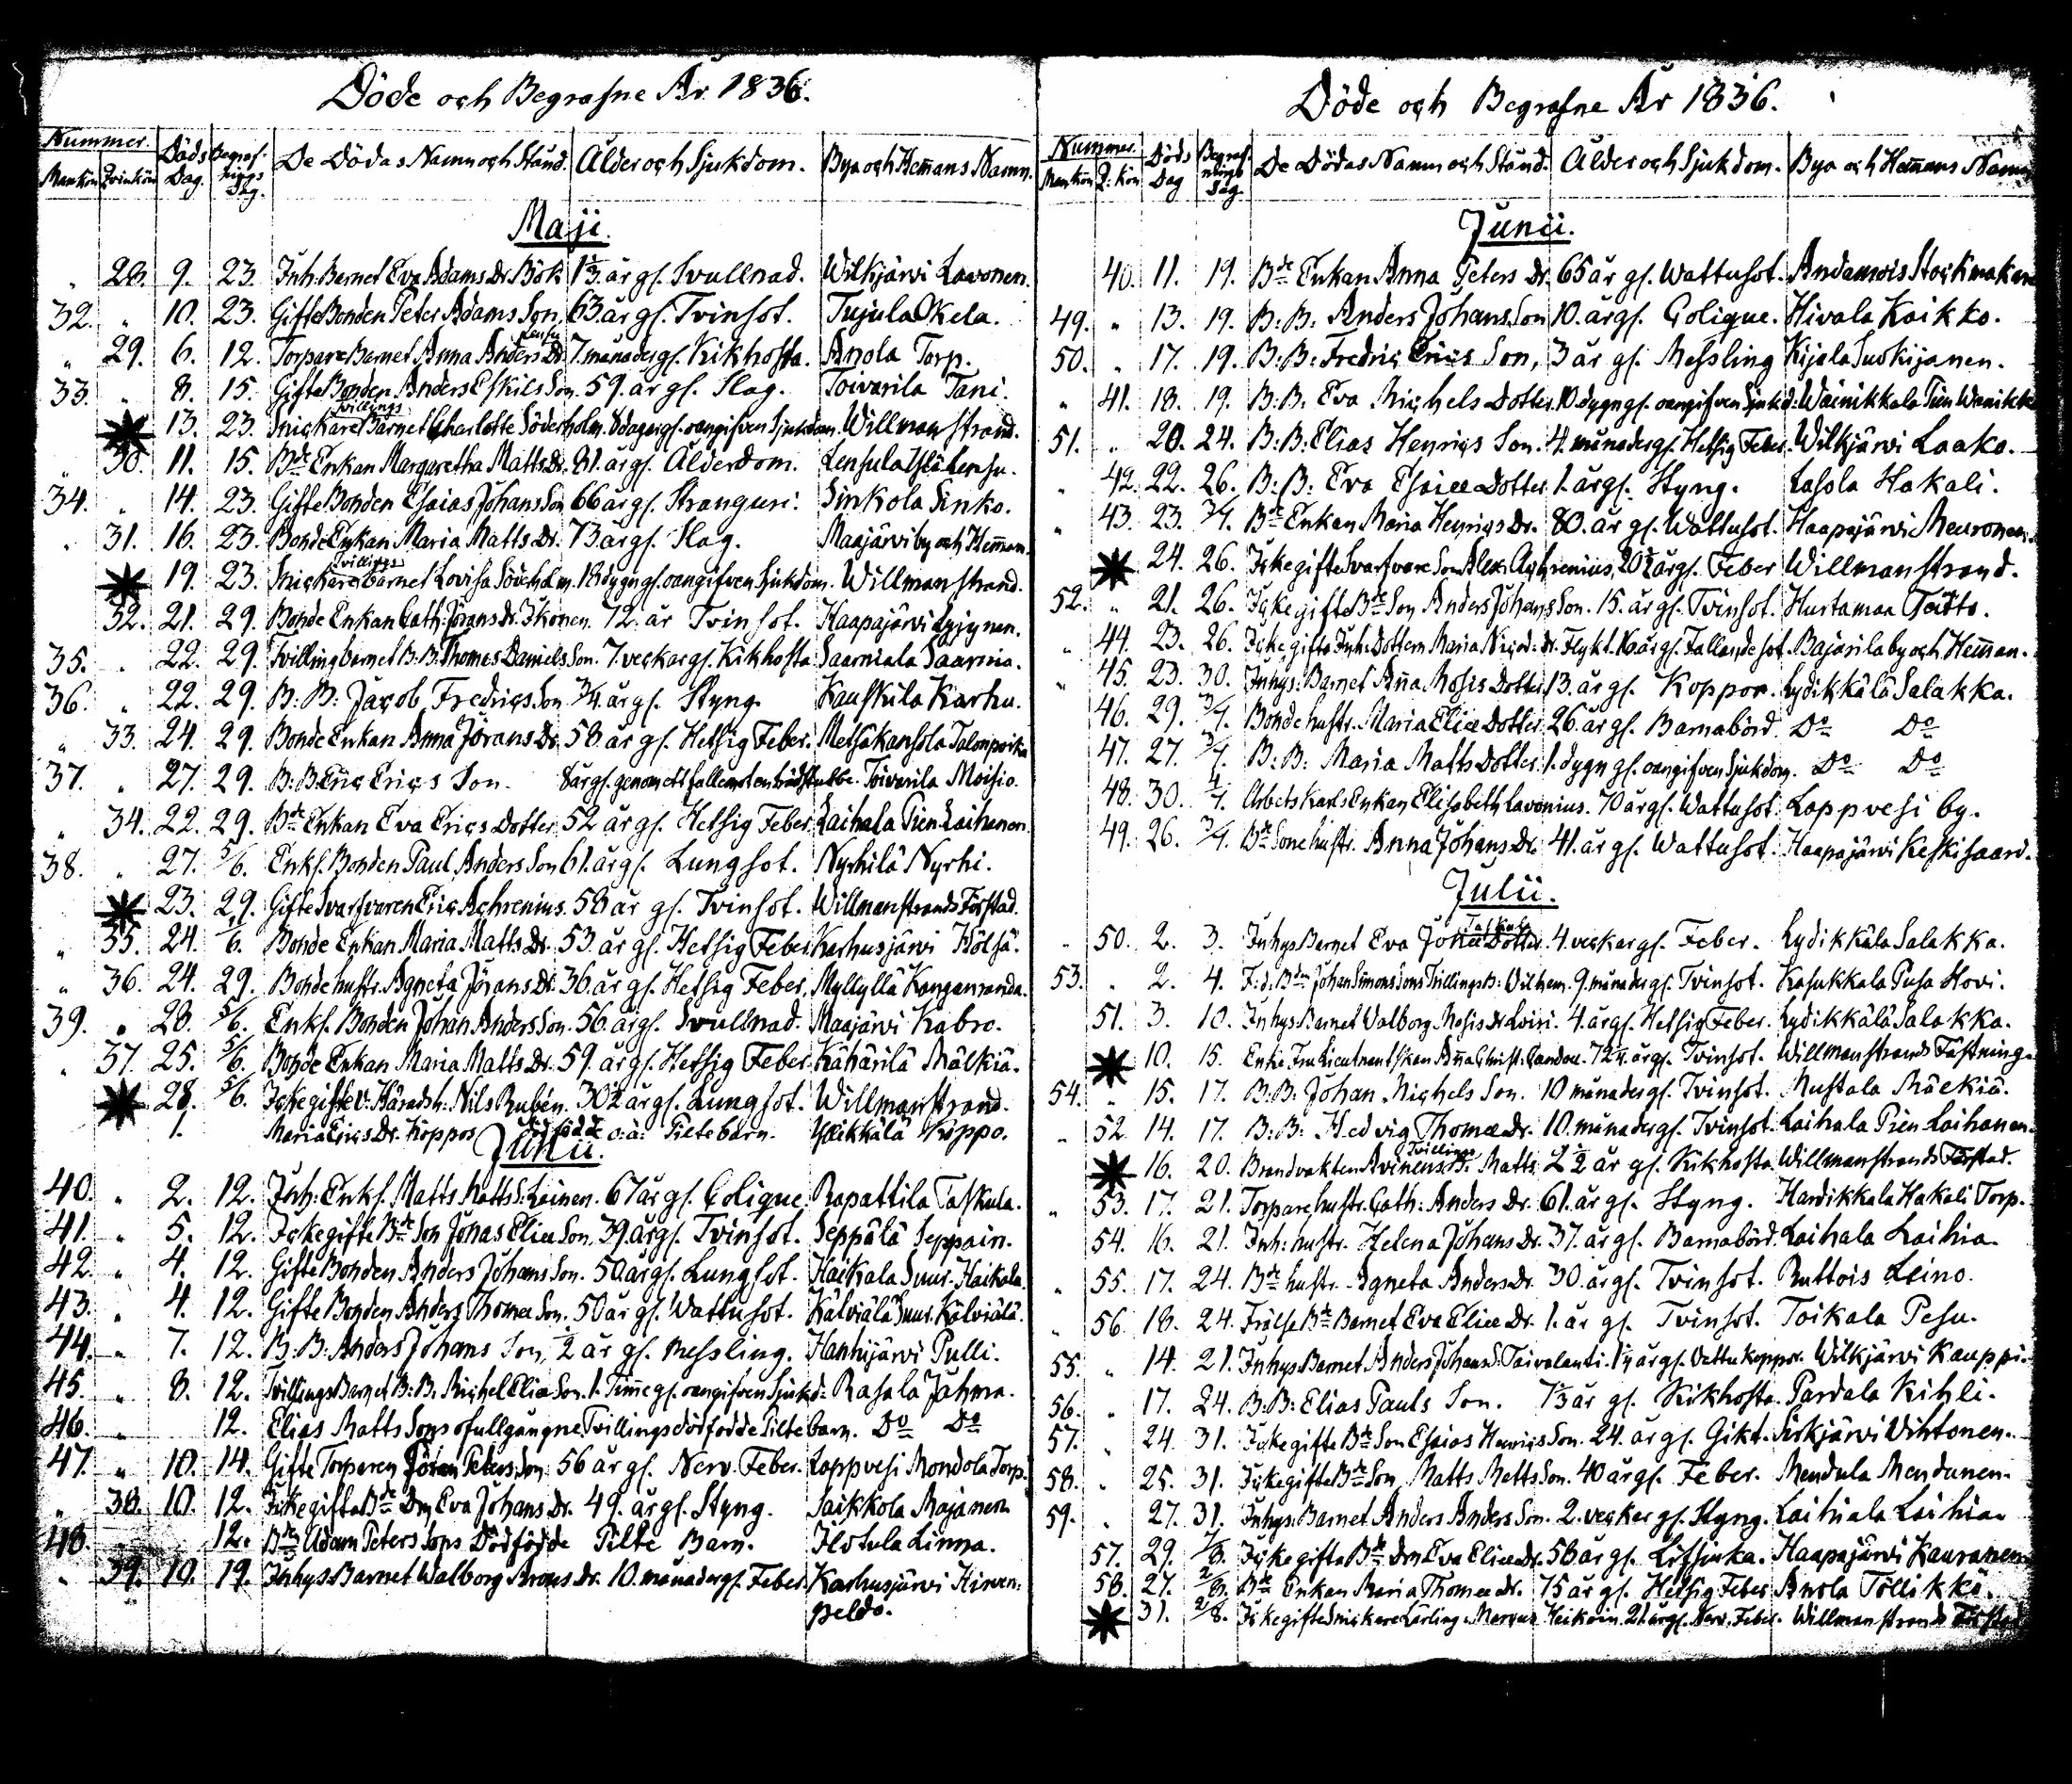 Döde och Begrafne År 1836.
Nummer. Döds Dag. Begrafnings Dag. De Dödas Namn och Stånd. Ålder och Sjukdom. Bya och Hem̄ans Namn.
Mankön Qvinkön
Maji.
„ 28. 9. 23. Inh. Barnet Eva Adams Dr. Bök 1⅓ år gl. Svullnad. Wilkjärvi Lavonen.
32. „ 10. 23. Gifte Bonden Peter Adams Son, 63. år gl. Tvinsot. Tujula Okela.
„ 29. 6. 12. Torpare Barnet Anna Anders Dr. 7. månader gl. Kikhosta. Anola Torp.
33. „ 8. 15. Gifte Bonden Anders Eskils Son. 59. år gl. Slag. Toivarila Tani.
13. 23. Snickare Tvillings Barnet Charlotte Söderholm. 8 dagar gl. oangifven Sjukdom. Willmanstrand.
„ 30. 11. 15. Bde Enkan Margaretha Matts Dr. 81. år gl. Ålderdom. Lensula Ylä Lensu.
34. „ 14. 23. Gifte Bonden Esaias Johans Son 66 år gl. Stranguri. Sinkola Sinko.
„ 31. 16. 23. Bonde Enkan Maria Matts Dr. 73 år gl. Slag. Maajärvi by och Hem̄an.
19. 23. Snickare Tvillings barnet Lovisa Söderholm. 13 dygn gl. oangifven Sjukdom. Willmanstrand.
32. 21. 29. Bonde Enkan Cath: Jörans Dr. Ikonen. 72. år Tvinsot. Haapajärvi Lyijynen.
35. „ 22. 29. Tvillingbarnet B. B. Thomas Daniels Son. 7. veckar gl. Kikhosta Saarniala Saarnia.
36. „ 22. 29. B: B: Jacob Fredrics Son ¾ år gl. Styng. Kauskila Karhu.
„ 33. 24. 29. Bonde Enkan Anna Jörans Dr. 58. år gl. Hetsig Feber. Metsäkansola Talonpoika
37. „ 27. 29. B: B Eric Erics Son. 8 år gl. Toivarila Moisio.
„ 34. 22. 29. Bde Enkan Eva Erics Dotter 52 år gl. Hetsig Feber. Laihala Pien Laihanen
38. „ 27. 5/6. Enkl. Bonden Paul Anders Son 61. år gl. Lungsot. Nyrhilä Nyrhi.
23. 29. Gifte Svarfvaren Eric Achrenius. 58 år gl. Tvinsot. Willmanstrands Förstad.
„ 35. 24. /6. Bonde Enkan Maria Matts Dr. 53. år gl. Hetsig Feber Karhusjärvi Hölsä.
„ 36. 24. 29. Bonde hustr. Agneta Jörans Dr. 36. år gl. Hetsig Feber. Myllylä Kangasranda.
39. „ 28. 5/6. Enkl. Bonden Johan Anders Son. 56. år gl. Svullnad. Maajärvi Kabro.
„ 37. 25. 5/6. Bonde Enkan Maria Matts Dr. 59. år gl. Hetsig Feber Kähärilä Mälkiä.
28. 5/6. Icke gifte v. Häradsh: Nils Rubén. 30½ år gl. Lungsot. Willmanstrand.
1. Maria Erics Dr. Koppos dödfödde o.ä. Piltebarn. Yläikkälä Kippo.
Junii.
40. „ 2. 12. Inh: Enkl. Matts Matts S: Leinen. 67 år gl. Colique. Rapattila Taskula.
41. „ 5. 12. Icke gifte Bde Son Jonas Eliæ Son. 39. år gl. Tvinsot. Seppälä Seppäin.
42. „ 4. 12. Gifte Bonden Anders Johans Son. 50 år gl. Lungsot. Haikala Suur-Haikala.
43. „ 4. 12. Gifte Bonden Anders Thomæ Son. 50 år gl. Wattusot. Kälviälä Suur-Kälviälä.
44. „ 7. 12. B: B: Anders Johans Son, ½ år gl. Messling. Hanhijärvi Pulli.
45. „ 8. 12. Tvillings Barnet B: B: Michel Eliæ Son. 1. Tim̄e gl. oangifven Sjukd: Rasala Jähma.
46. „ 12. Elias Matts Sons ofullgångne Tvillings dödfödde Pilte barn. Do Do
47. „ 10. 14. Gifte Torparen Jöran Peters Son 56 år gl. Nerv. Feber. Lappvesi Mondola Torp.
„ 38. 10. 12. Icke gifte Bde Dn Eva Johans Dr. 49. år gl. Styng. Saikkola Majanen
48. 12. Bde Adam Peters Sons Dödfödde Pilte Barn. Ilotula Linna.
„ 39. 19. 19. Inhys: Barnet Walborg Arons Dr. 10. månader gl. Feber Karhusjärvi Hirven:
peldo.
Döde och Begrafne År 1836.
Nummer. Döds Dag Begrafnings Dag. De Dödas Namn och Stånd. Ålder och Sjukdom. Bya och Hem̄ans Namn
Mankön Q: kön
Junii.
40. 11. 19. Bde Enkan Anna Peters Dr. 65 år gl. Wattusot.
49. „ 13. 19. B: B: Anders Johans Son 10. år gl. Colique. Hivala Kaikko.
50. „ 17. 19. B: B: Fredric Erics Son, 3 år gl. Messling Kijala Suokijanen.
„ 41. 18. 19. B: B: Eva Michels Dotter. 10. dygn gl. oangifven Sjukd: Wainikkala Pien Wainikka
51. „ 20. 24. B: B: Elias Henrics Son. 4. månader gl. Hetsig Feber. Wilkjärvi Laako.
„ 42. 22. 26. B: B: Eva Esaiæ Dotter 1. år gl. Styng. Lasola Hakali.
„ 43. 23. 3/7. Bde Enkan Maria Henrics Dr. 80. år gl. Wattusot. Haapajärvi Meuronen.
24. 26. Icke gifte Svarfvare Son Alex: Achrenius, 20¼ år gl. Feber Willmanstrand.
52. „ 21. 26. Icke gifte Bde Son Anders Johans Son. 15. år gl. Tvinsot. Hurtamaa Tätto.
„ 44. 23. 26. Icke gifta Inh: Dottern Maria Nicod: dr. Flykt. 16 år gl. Fallandesot. Bajarila by och Hem̄an.
„ 45. 23. 30. Inhys: Barnet An̄a Mosis Dotter 13. år gl. Koppor. Lydikkälä Salakka.
46. 29. 3/7. Bonde hustr. Maria Eliæ Dotter 26. år gl. Barnabörd Do Do
47. 27. 3/7. B: B: Maria Matts Dotter. 1. dygn gl. oangifven Sjukdom. Do Do
48. 30. 4/7. Arbets Karls Enkan Elisabeth Lavonius. 70 år gl. Wattusot. Lappvesi by.
49. 26. 3/7. Bde Sonehustr. Anna Johans Dr. 41. år gl. Wattusot. Haapajärvi Keskisaari.
Julii.
50. 2. 3. Inhys Barnet Eva Jonæ Dotter 4. veckar gl. Feber. Lydikkälä Salakka.
53. „ 2. 4. F: d: Bdn Johan Simons Sons Trillings B: Wilhem. 9. månader gl. Tvinsot. Kasukkala Pusa Hovi.
51. 3. 10. Inhys Barnet Walborg Mosis Dr 4. år gl. Hetsig Feber. Lydikkälä Salakka.
10. 15. Enke Fru Lieutnantskan An̄a Christ: 72¼ år gl. Tvinsot. Willmanstrands Fästning.
54. „ 15. 17. B: B: Johan Michels Son. 10 månader gl. Tvinsot. Mustala Mälkiä.
„ 52 14. 17. B: B: Hedvig Thomæ Dr. 10. månader gl. Tvinsot. Laihala Pien Laihanen.
16. 20. Brandvakten Avinens Tvillings B. Matts 2½ år gl. Kikhosta. Willmanstrands Förstad.
„ 53. 17. 21. Torpare hustr. Cath: Anders Dr. 61. år gl. Styng. Hardikkala Hakali Torp.
54. 16. 21. Inh: hustr. Helena Johans Dr. 37. år gl. Barnabörd. Laihala Laihia.
„ 55. 17. 24. Bde hustr. Agneta Anders Dr. 30. år gl. Tvinsot. Ruttois Leino.
„ 56 18. 24. Frälse Bde Barnet Eva Eliæ Dr. 1. år gl. Tvinsot. Toikala Pesu.
55. „ 14. 21. Inhys Barnet Anders Johans S: Taivalanti. 1¼ år gl. Vattukoppor. Wilkjärvi Kauppi.
56. „ 17. 24. B: B: Elias Pauls Son. 7⅓ år gl. Kikhosta. Pardala Kihli.
57. „ 24. 31. Icke gifte Bde Son Esaias Henrics Son. 24. år gl. Gikt. Sirkjärvi Wihtonen.
58. „ 25. 31. Icke gifte Bde Son Matts Matts Son. 40 år gl. Feber. Mendula Mendunen.
59. „ 27. 31. Inhys: Barnet Anders Anders Son. 2. veckar gl. Styng. Laihiala Laihia.
57. 29. 7/8. Icke gifte Bde Drn Eva Eliæ Dr. 58 år gl. Litsjuka. Haapajärvi Kauranen
58. 27. 2/8. Bde Enkan Maria Thomæ Dr. 75 år gl. Hetsig Feber Anola Töllikkö.
31. 2/8. Icke gifte Snickare Lärling Marcus Heikoin. 21 år gl. Nerv. Feber. Willmanstrands Förstad